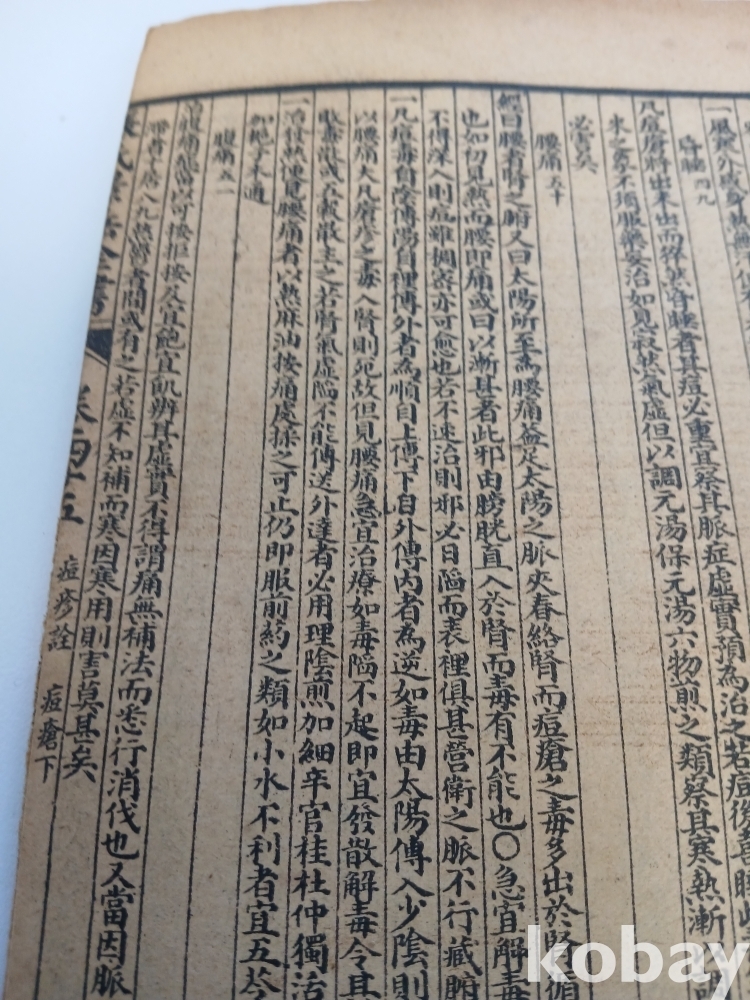 一風寒外感身熱無
昏睡四九
凡痘瘡將出未出而猝然昏睡者其痘必重宜察其脈症虛實預為治之若痘後喜睡
來之象不須服藥妄治如見寂然氣虛但以調元湯保元湯六物煎之類察其寒熱漸
必害矣
腰痛五十
經曰腰者腎之腑又曰太陽所至為腰痛蓋足太陽之脈夾脊絡腎而痘瘡之毒多出於腎循
也如初見熱而腰即痛或日以漸甚者此邪由膀胱直入於腎而毒有不能也〇急宜解毒
不得深入則痘雖稠密亦可愈也若不速治則邪必日陷而表裡俱甚營衛之脈不行藏腑
一凡痘毒自陰傳陽自裡傳外者為順自上傳下自外傳內者為逆如毒由太陽傳入少陰則
以腰痛大凡瘡疹之毒入腎則死故但見腰痛急宜治療如毒陷不起即宜發散解毒令其
敗毒散或五積散主之若腎氣虛陷不能傳送外達者必用理陰煎加細辛官桂杜仲獨活
一治發熱便見腰痛者以熱麻油按痛處揉之可止仍即服前药之類如小水不利者宜五苓
加梔子木通
腹痛五一
治腹痛總當以可按拒按及宜飽宜飢辨其虛實不得謂痛無補法而悉行消伐也又當因脈
滯者十居八九熱鬱者間或有之若虛不知補而寒因寒用則害莫甚矣
景岳全書 卷四五 痘疹詮 痘瘡下
kobay